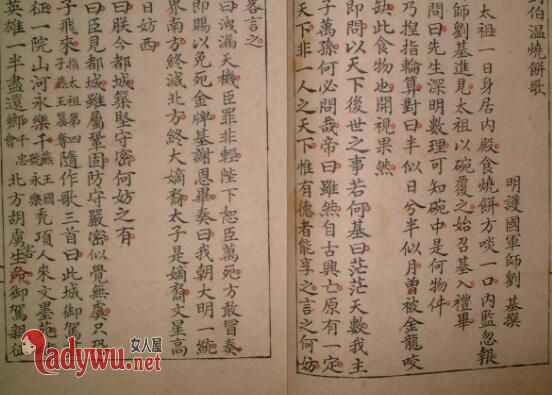 劉伯温燒餅歌
明護國軍師劉基撰
太祖一日身居內殿食燒餅方啖一口內監忽報
師劉基進見太祖以碗覆之始召基入禮畢
問曰先生深明數理可知碗中是何物件
乃揑指輪算對曰半似日兮半似月曾被金龍咬
缺此食物也開視果然
即問以天下後世之事若何基曰茫茫天數我主
子萬孫何必問哉帝曰雖然自古興亡原有一定
天下非一人之天下惟有德者能享之言之何妨
畧言之
曰洩漏天機臣罪非輕陛下恕臣萬死方敢冒奏
即賜以免死金牌基謝恩畢奏曰我朝大明一統
界南方終滅北方終大嫡裔太子是嫡裔文星高
日妨西
曰朕今都城築堅守密何妨之有
曰臣見都城雖屬鞏固防守嚴密似覺無虞只恐
子飛來指太祖第四子燕王篡奪隨作歌三首曰此城御駕
征一院山河永樂平燕王國號永樂禿頂人來文墨
英雄一半盡還鄉
北方胡虜生
命御駕親征
女人屋
Ladywu.net